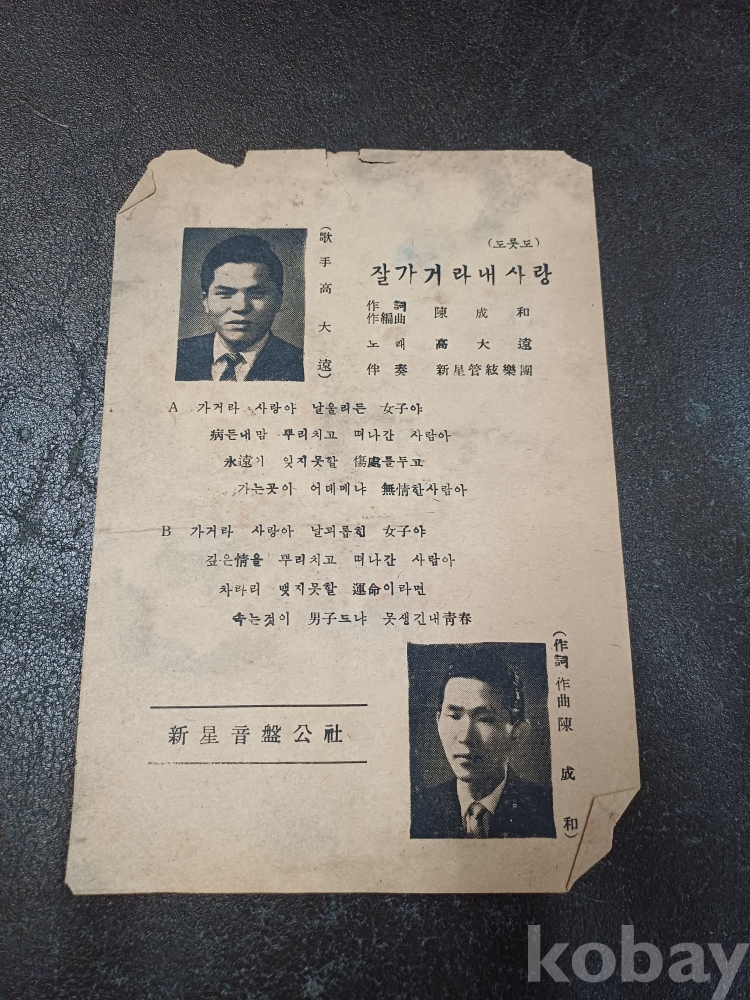 (歌手 高大遠)
(도롯도)
잘가거라내사랑
作詞
作編曲 陳成和
노래 高大遠
伴奏 新星管絃樂團
A 가거라 사랑아 날울리든 女子야
病든내맘 뿌리치고 떠나간 사람아
永遠이 잊지못할 傷處를두고
가는곳이 어데메냐 無情한사람아
B 가거라 사랑아 날괴롭힌 女子야
깊은情을 뿌리치고 떠나간 사람아
차라리 맺지못할 運命이라면
속는것이 男子드냐 못생긴내靑春
新星音盤公社
(作詞 作曲 陳成和)
kobay